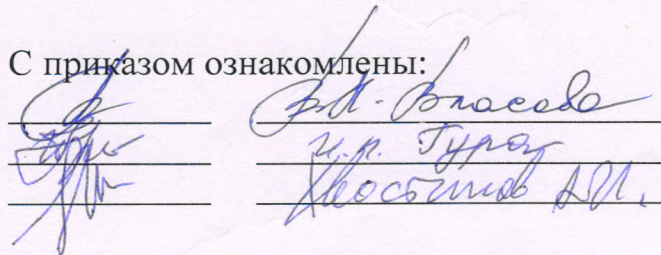 С приказом ознакомлены:
В.П. Власова
И.Р. Гура
Хвостиков А.И.